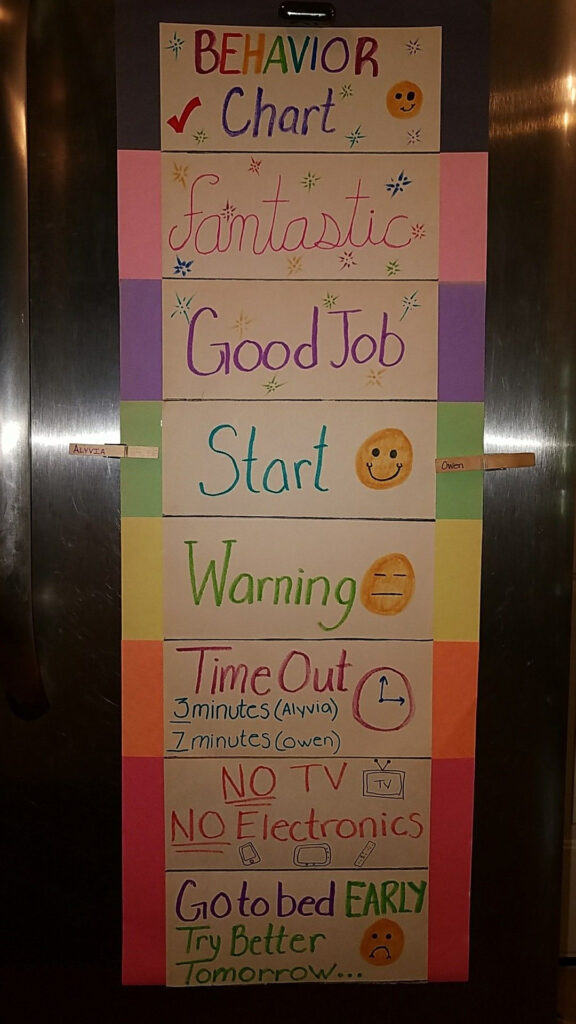 BEHAVIOR
Chart
fantastic
Good Job
Start
ALYVIA
Owen
Warning
Time Out
3 minutes (Alyvia)
7 minutes (Owen)
NO TV
TV
NO Electronics
Go to bed EARLY
Try Better
Tomorrow...